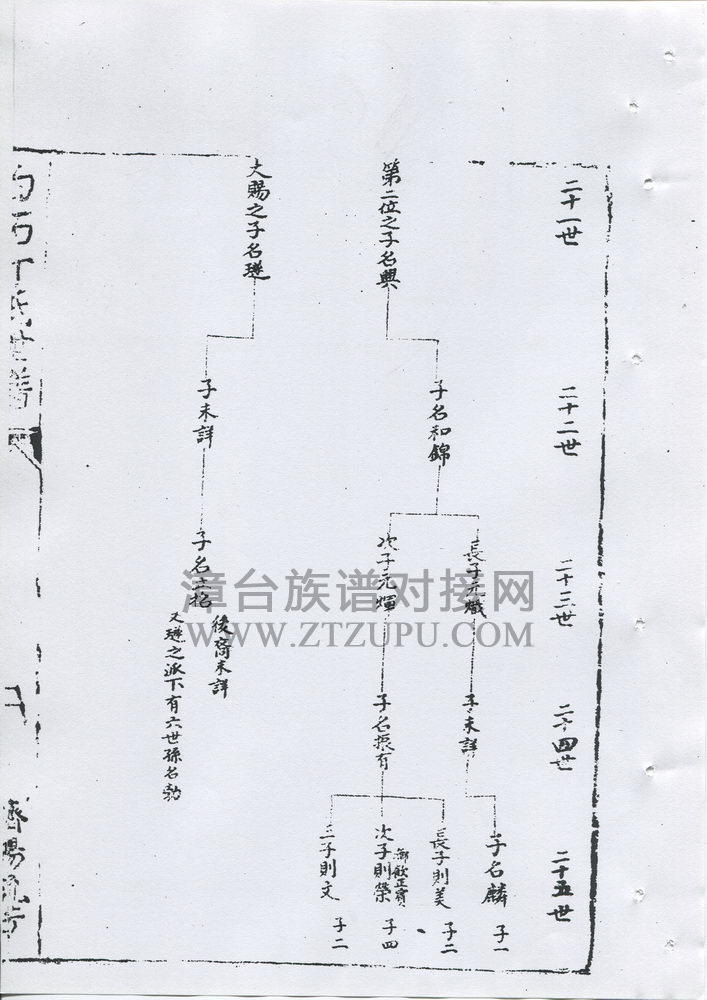 二十一世
二十二世
二十三世
二十四世
二十五世
第二位之子名興
子名和錦
長子元熾
次子元煇
子未詳
子名振有
子名麟 子一
長子則美 子二
次子則榮 子四
鄉飲正賓
三子則文 子二
大賜之子名璲
子未詳
子名士招
後裔未詳
又璲之派下有六世孫名勃
丁氏世譜
濟陽
漳台族谱对接网
WWW.ZTZUPU.COM